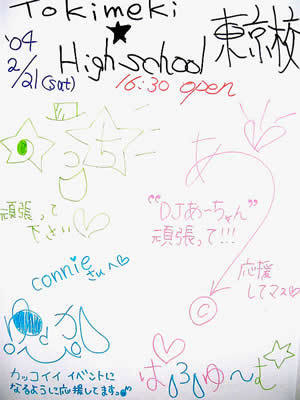 Tokimeki
★
High school 東京校
'04
2/21(sat)
16:30 open
5
あ
頑張って
下さい♡
"DJあーちゃん"
頑張って!!!
応援
してマス♡
c
connie
さんへ♡
カッコイイ イベントに
なるように応援してます。
は、ふゆ〜む☆